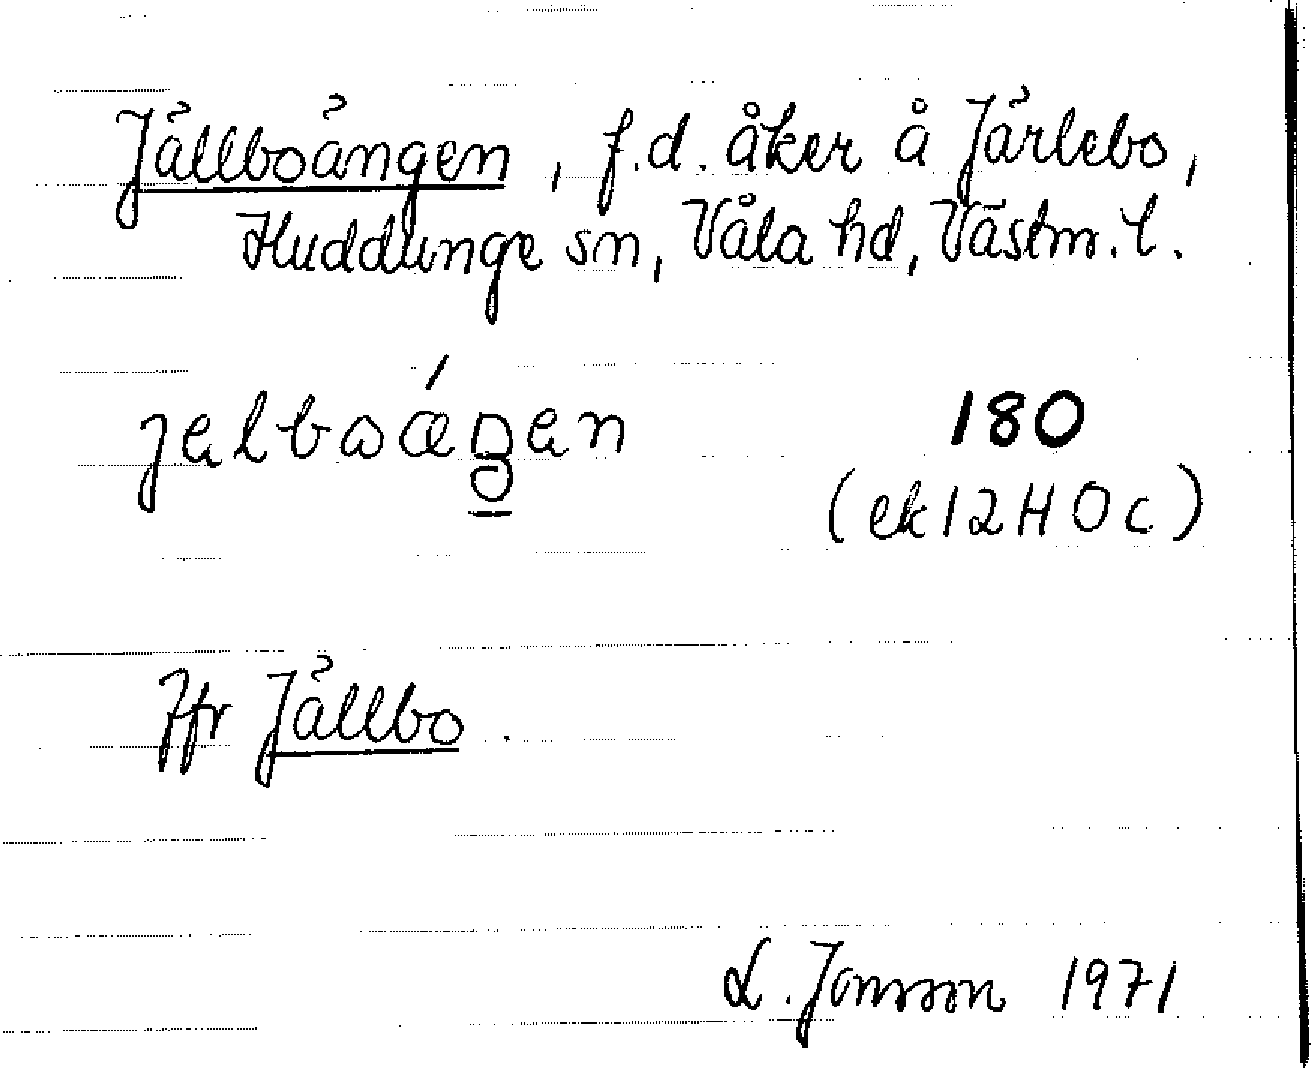 Jällboängen, f.d. åker å Järlebo,
Huddunge sn, Våla hd, Västm. l.
180
(ek 12 H 0 c)
Jfr Jällbo.
L. Jonsson 1971